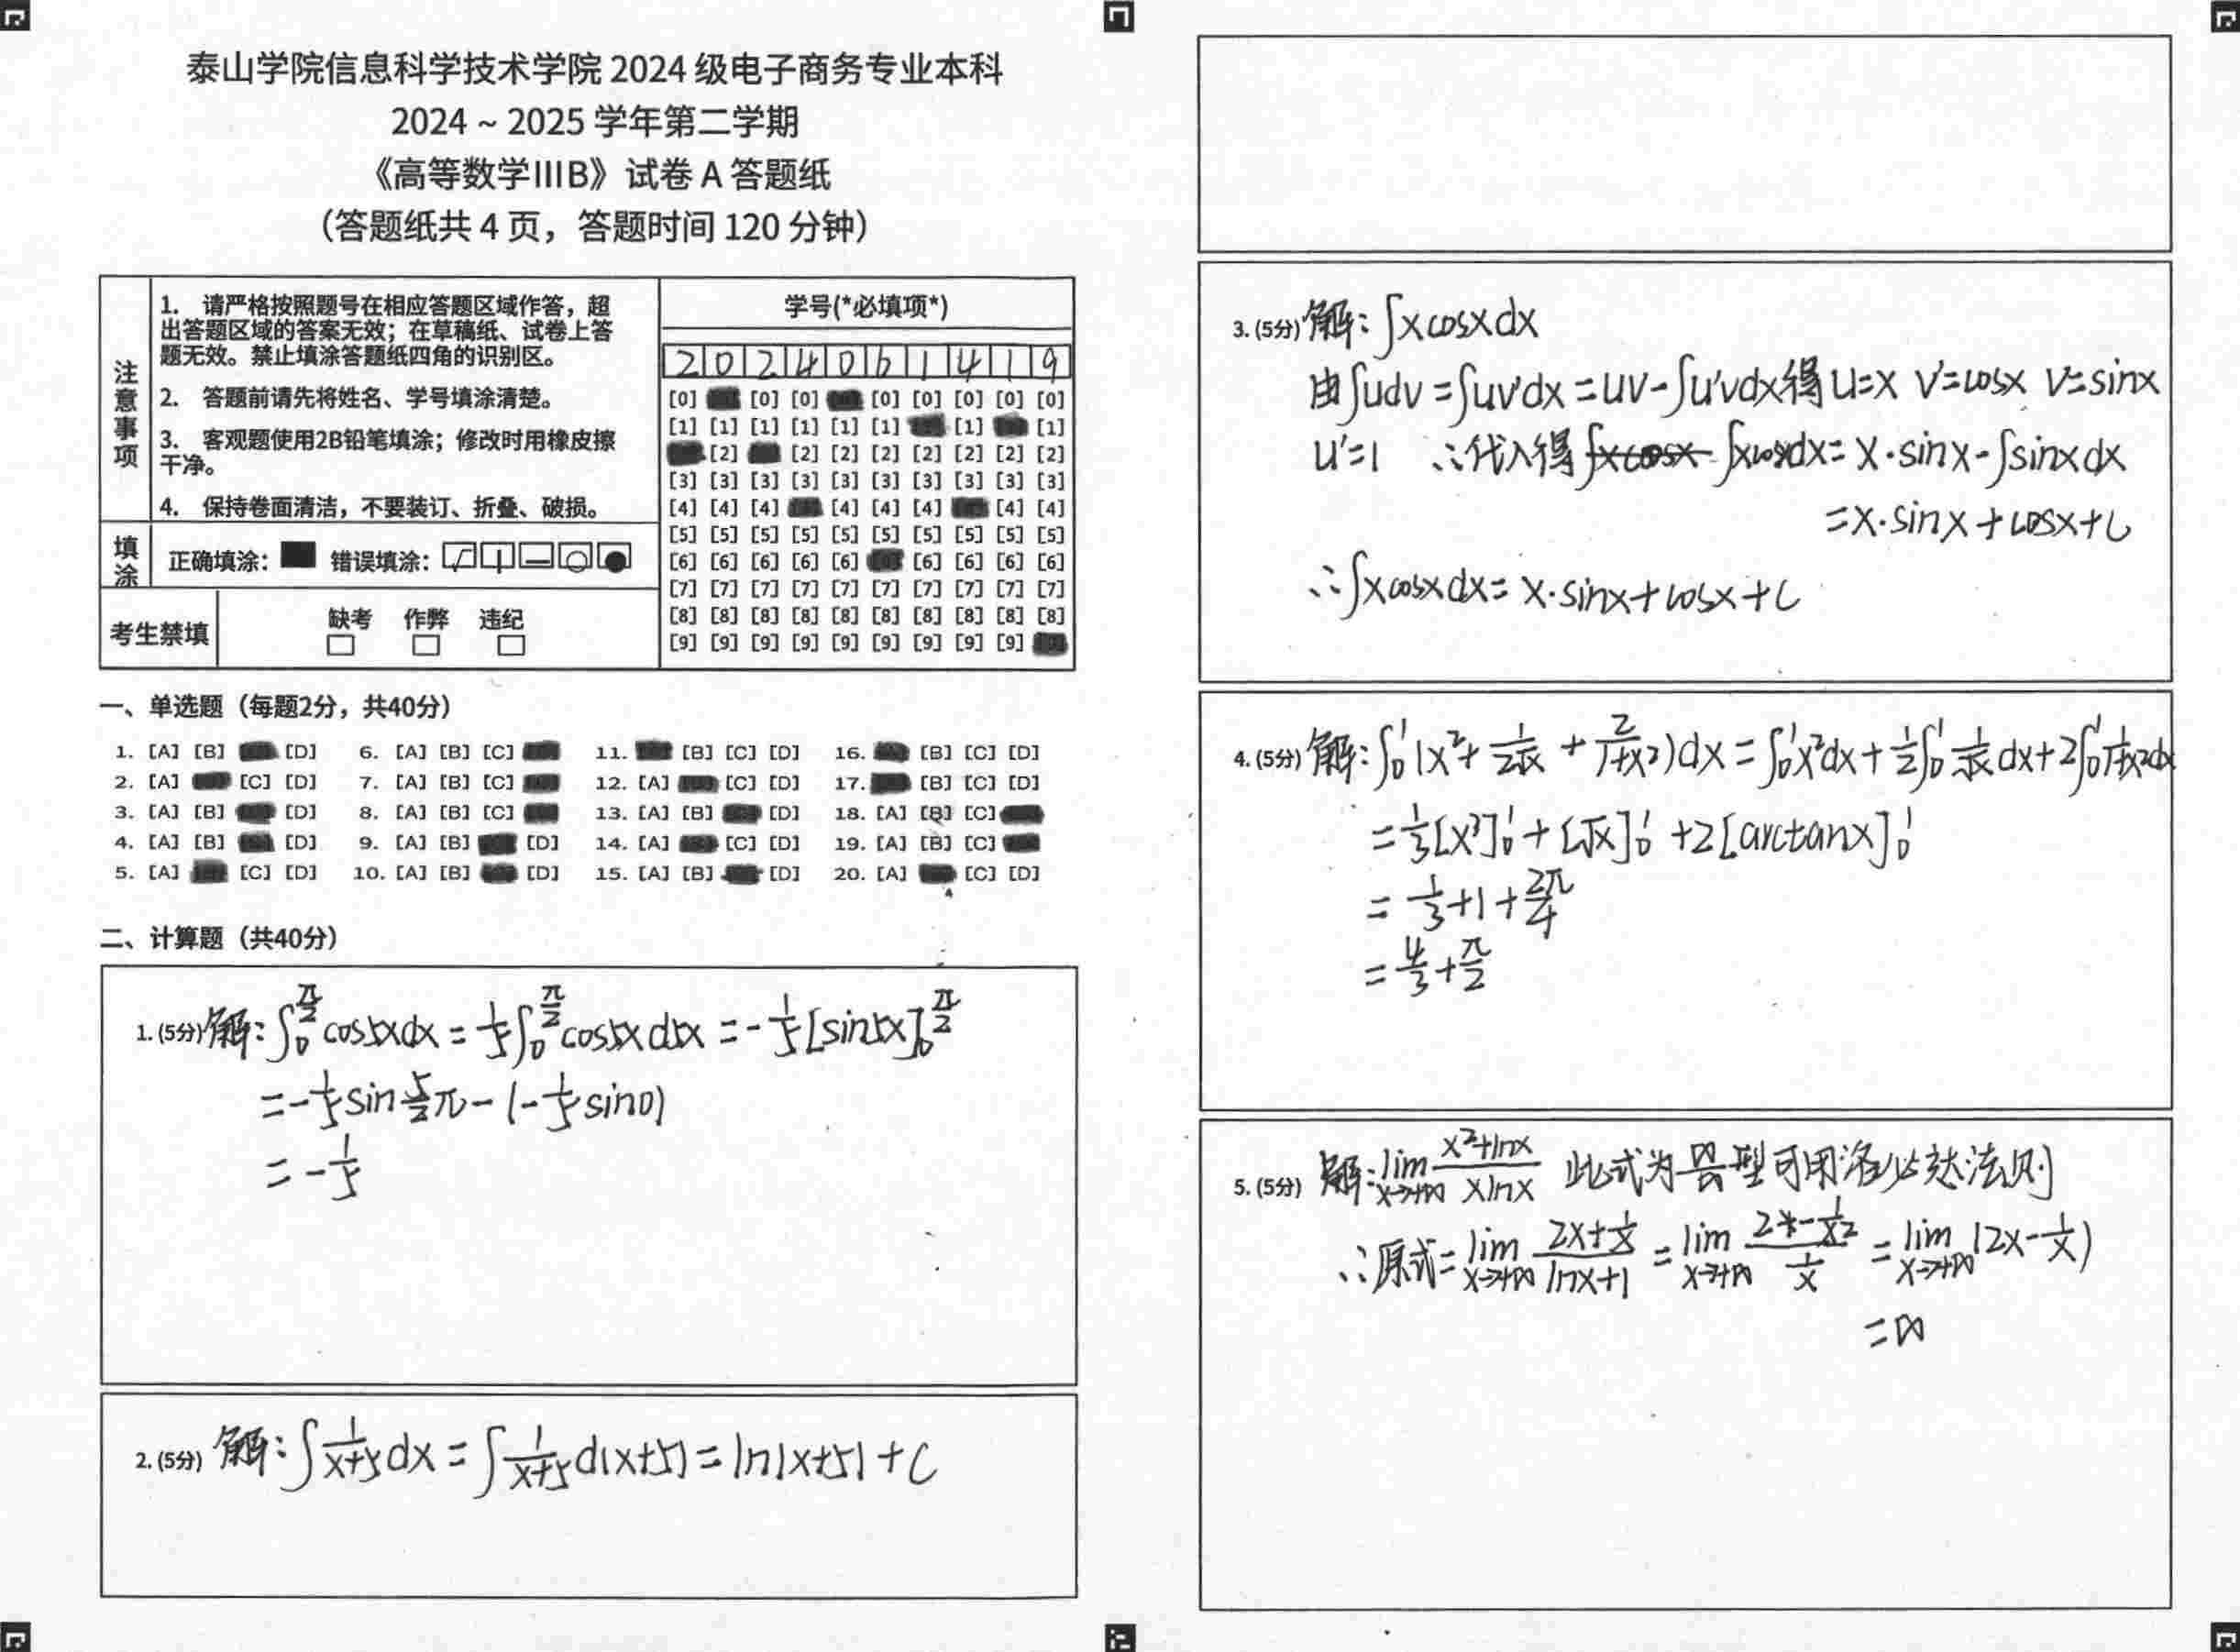 泰山学院信息科学技术学院 2024 级电子商务专业本科
2024 ~ 2025 学年第二学期
《高等数学IIIB》试卷 A 答题纸
（答题纸共 4 页，答题时间 120 分钟）
注意事项
1. 请严格按照题号在相应答题区域作答，超
出答题区域的答案无效；在草稿纸、试卷上答
题无效。禁止填涂答题纸四角的识别区。
2. 答题前请先将姓名、学号填涂清楚。
3. 客观题使用2B铅笔填涂；修改时用橡皮擦
干净。
4. 保持卷面清洁，不要装订、折叠、破损。
填涂
正确填涂： 错误填涂：
考生禁填
缺考 作弊 违纪
学号(*必填项*)
2 0 2 4 0 6 1 4 1 9
[0] [0] [0] [0] [0] [0] [0] [0]
[1] [1] [1] [1] [1] [1] [1] [1]
[2] [2] [2] [2] [2] [2] [2] [2]
[3] [3] [3] [3] [3] [3] [3] [3] [3] [3]
[4] [4] [4] [4] [4] [4] [4] [4]
[5] [5] [5] [5] [5] [5] [5] [5] [5] [5]
[6] [6] [6] [6] [6] [6] [6] [6] [6]
[7] [7] [7] [7] [7] [7] [7] [7] [7] [7]
[8] [8] [8] [8] [8] [8] [8] [8] [8] [8]
[9] [9] [9] [9] [9] [9] [9] [9] [9]
一、单选题（每题2分，共40分）
1. [A] [B] [D] 6. [A] [B] [C] 11. [B] [C] [D] 16. [B] [C] [D]
2. [A] [C] [D] 7. [A] [B] [C] 12. [A] [C] [D] 17. [B] [C] [D]
3. [A] [B] [D] 8. [A] [B] [C] 13. [A] [B] [D] 18. [A] [B] [C]
4. [A] [B] [D] 9. [A] [B] [D] 14. [A] [C] [D] 19. [A] [B] [C]
5. [A] [C] [D] 10. [A] [B] [D] 15. [A] [B] [D] 20. [A] [C] [D]
二、计算题（共40分）
1. (5分) 解: ∫₀^(π/2) cos5xdx = 1/5 ∫₀^(π/2) cos5x d5x = -1/5 [sin5x]₀^(π/2)
= -1/5 sin 5/2 π - (-1/5 sin0)
= -1/5
2. (5分) 解: ∫ 1/(x+5) dx = ∫ 1/(x+5) d(x+5) = ln|x+5| + C
3. (5分) 解: ∫xcosxdx
由∫udv = ∫uv'dx = uv - ∫u'vdx得 u=x v'=cosx v=sinx
u'=1 ∴代入得 ∫xcosxdx = x·sinx - ∫sinxdx
= x·sinx + cosx + C
∴∫xcosxdx = x·sinx + cosx + C
4. (5分) 解: ∫₀¹ (x² + 1/(2√x) + 2/(1+x²))dx = ∫₀¹ x²dx + 1/2 ∫₀¹ 1/√x dx + 2∫₀¹ 1/(1+x²) dx
= 1/3 [x³]₀¹ + [√x]₀¹ + 2[arctanx]₀¹
= 1/3 + 1 + 2π/4
= 4/3 + π/2
5. (5分) 解: lim x→+∞ (x²+lnx)/(xlnx) 此式为 ∞/∞ 型可用洛必达法则
∴原式 = lim x→+∞ (2x+1/x)/(lnx+1) = lim x→+∞ (2-1/x²)/(1/x) = lim x→+∞ (2x-1/x)
= ∞